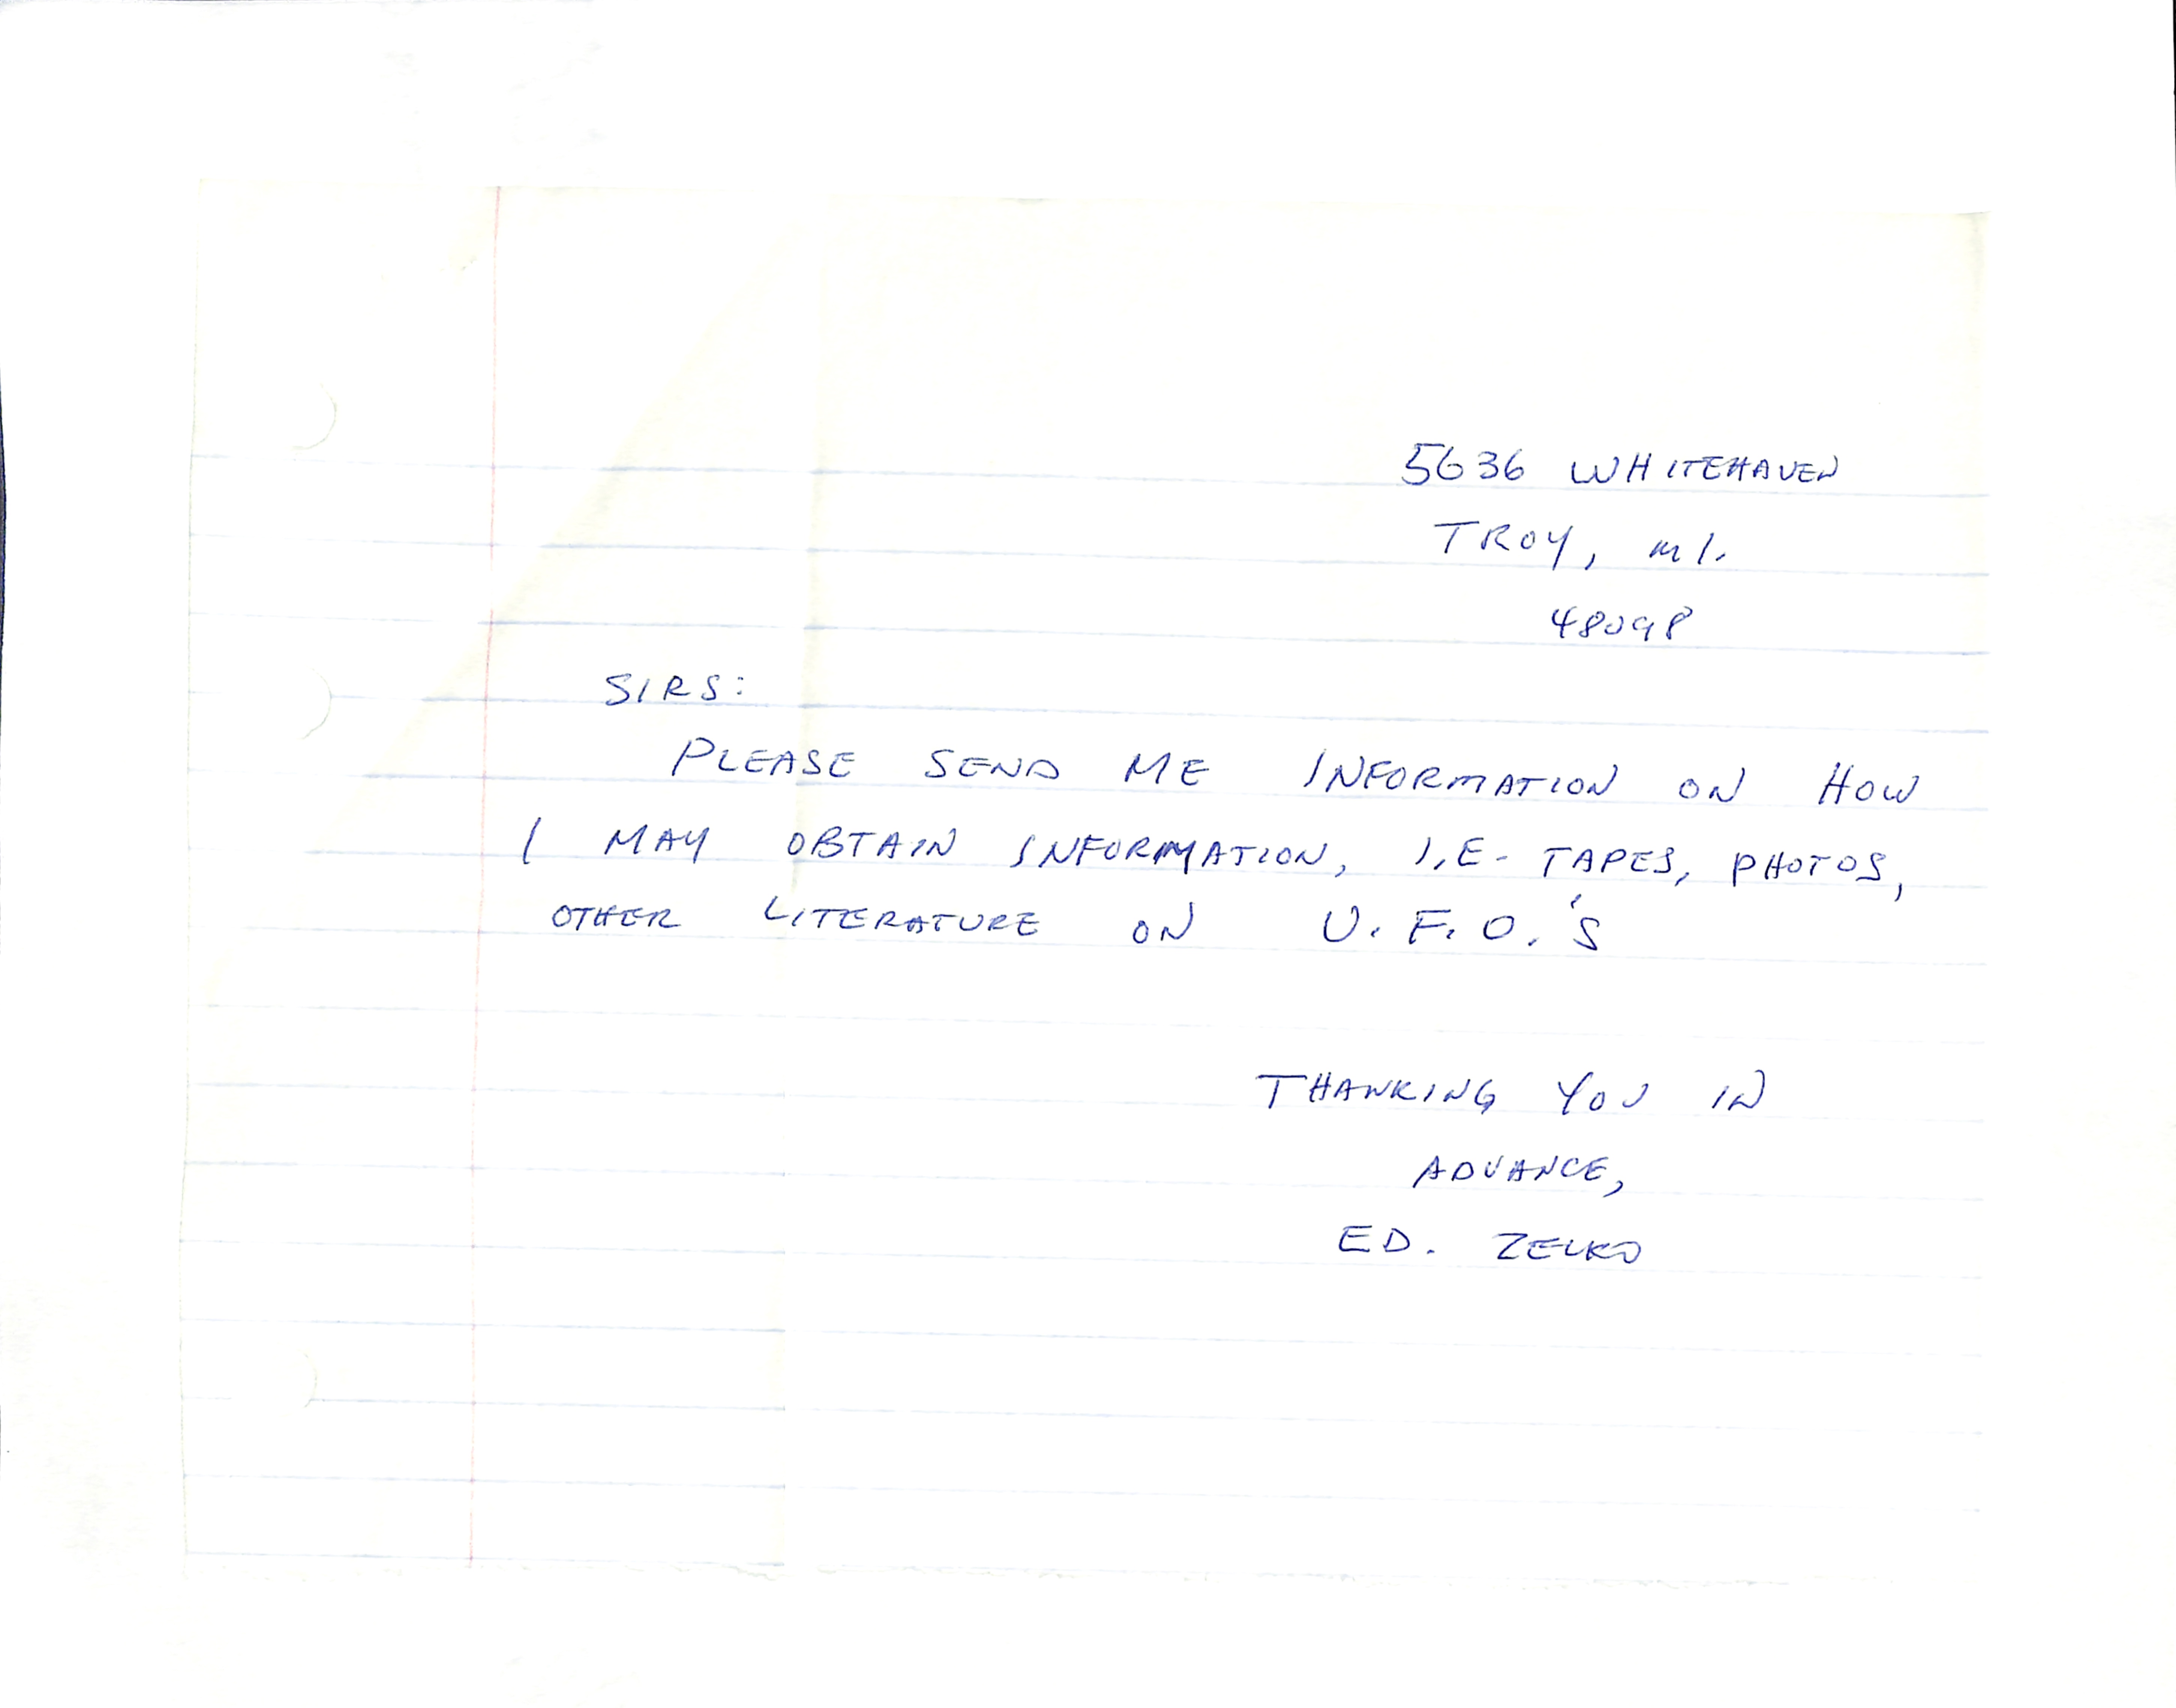 5636 WHITEHAVEN
TROY, MI.
48098
SIRS:
PLEASE SEND ME INFORMATION ON HOW
I MAY OBTAIN INFORMATION, I,E- TAPES, PHOTOS,
OTHER LITERATURE ON U.F.O.'S
THANKING YOU IN
ADVANCE,
ED. ZELKO